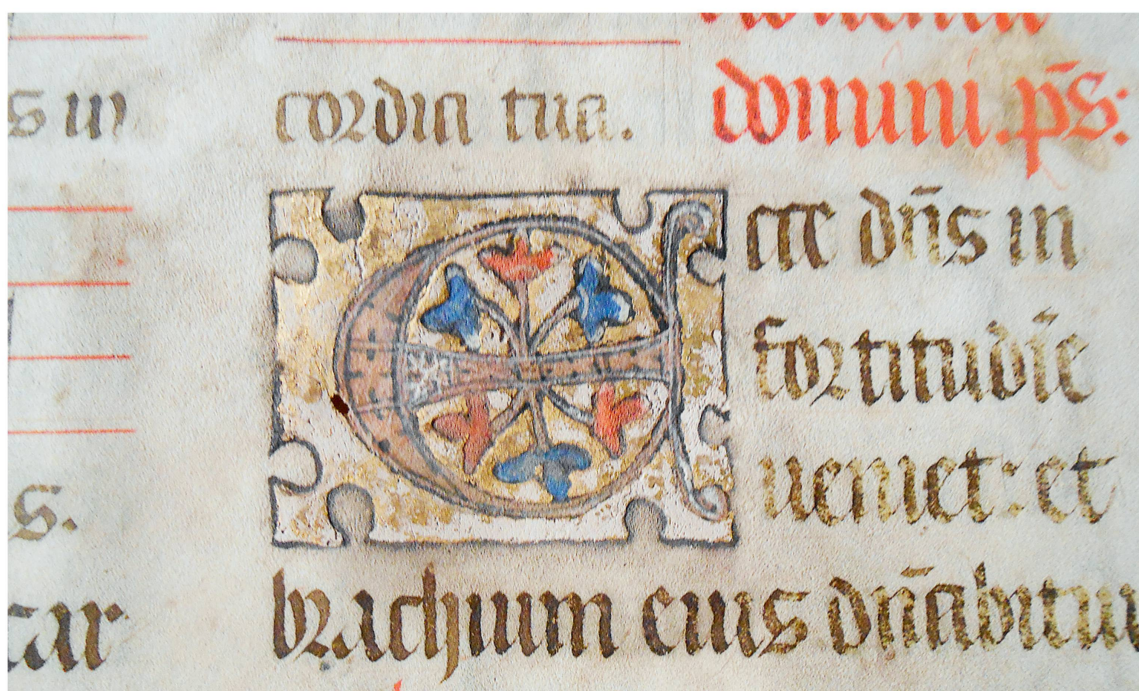 s in
cordia tua.
domini. ps̄:
Ecce dn̄s in
fortitudīe
ueniet: et
s.
brachium eius dn̄abitu